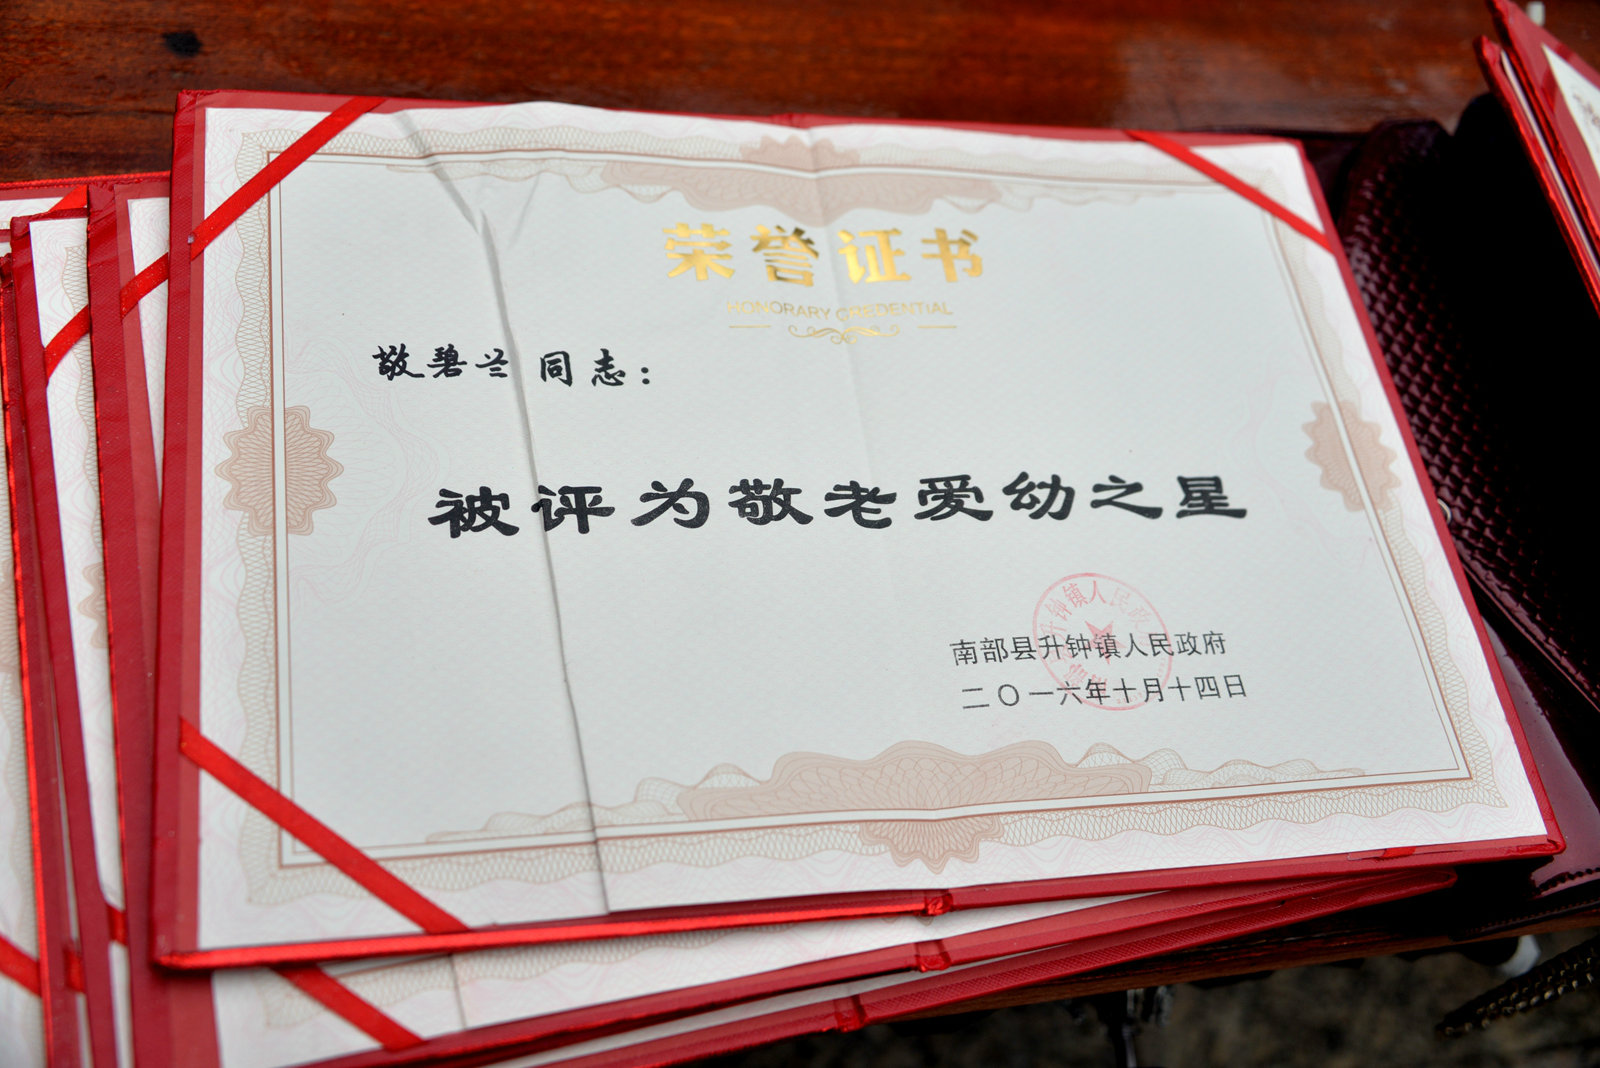 荣誉证书
HONORARY CREDENTIAL
敬碧兰 同志：
被评为敬老爱幼之星
南部县升钟镇人民政府
二〇一六年十月十四日